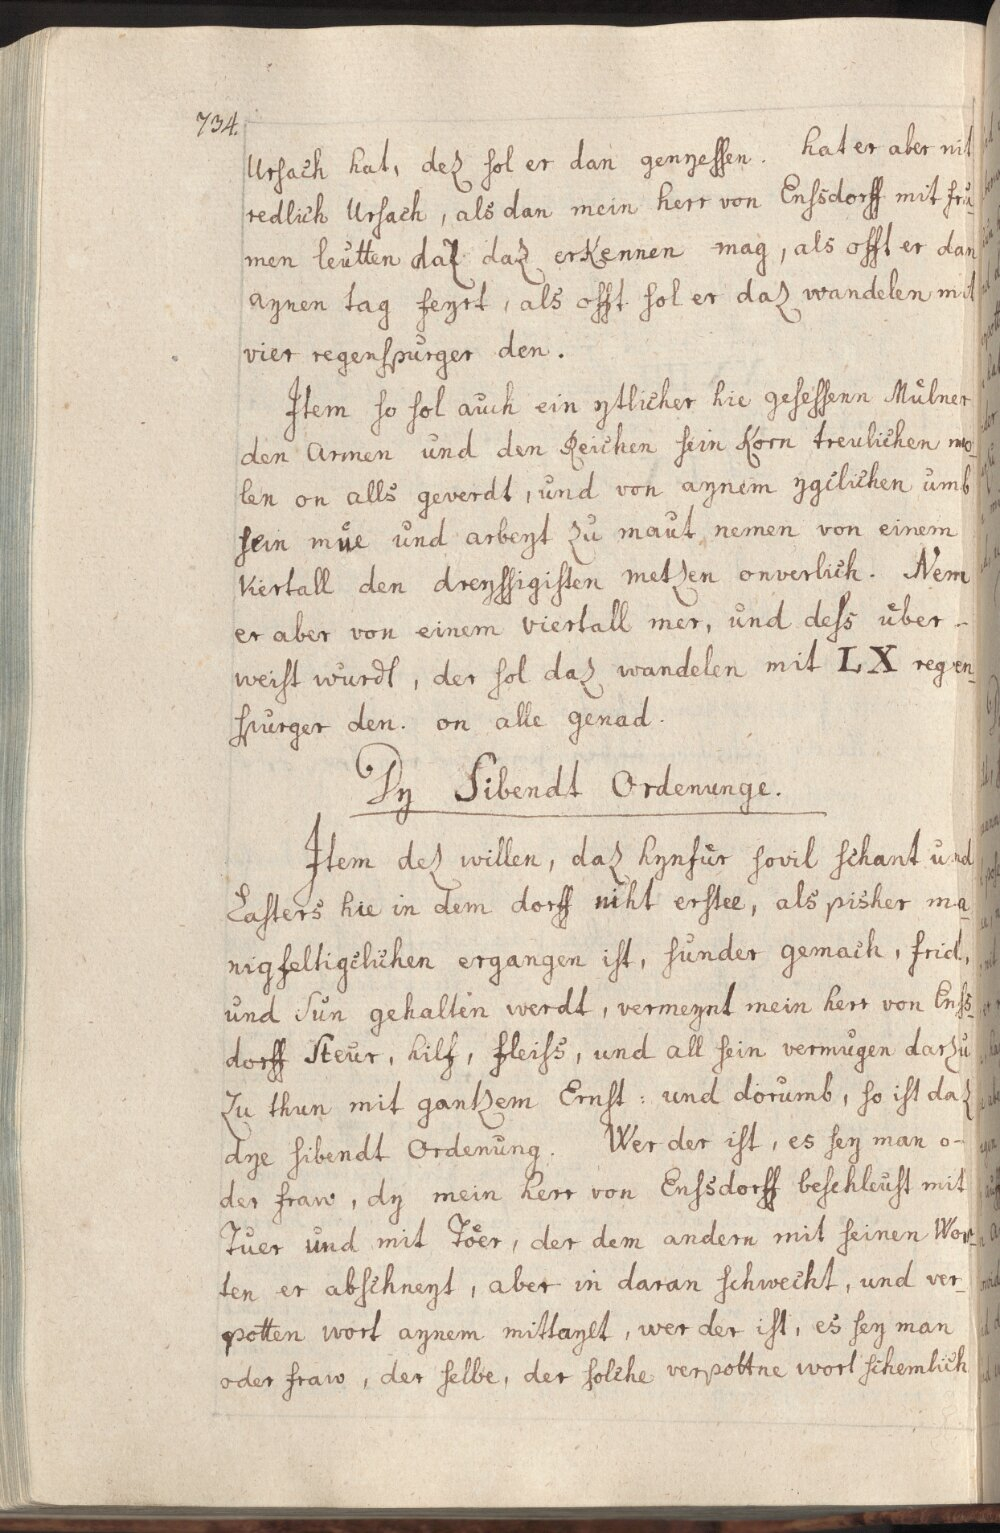 734.
Ursach hat, dez sol er dan genyessen. hat er aber nit
redlich Ursach, als dan mein herr von Enssdorff mit fru-
men leutten daz daz erkennen mag, als offt er dan
aynen tag feyrt, als offt sol er daz wandelen mit
vier regenspurger den.
Item so sol auch ein ytlicher hie gesessenn Mulner
den Armen und den Reichen sein Korn treulichen mo-
len on alls geverdt, und von aynem ygclichen umb
sein mue und arbeyt zu maut nemen von einem
Viertall den dreyssigisten metzen onverlich. Nem
er aber von einem viertall mer, und dess uber-
weist wurdt, der sol daz wandelen mit LX regen-
spurger den. on alle genad.
Dy Sibendt Ordenunge.
Item dez willen, daz hynfur sovil schant und
Lasters hie in dem dorff niht erstee, als pisher ma-
nigfeltigclichen ergangen ist, sunder gemach, frid,
und Sun gehalten werdt, vermeynt mein herr von Enss-
dorff Steur, hilf, fleiss, und all sein vermugen darzu
zu thun mit gantzem Ernst: und dorumb, so ist daz
dye sibendt Ordenung. Wer der ist, es sey man o-
der fraw, dy mein herr von Enssdorff beschleust mit
Tuer und mit Toer, der dem andern mit seinen Wor-
ten er abschneyt, aber in daran schwecht, und ver-
potten wort aynem mittaylt, wer der ist, es sey man
oder fraw, der selbe, der solche verpottne wort schemlich